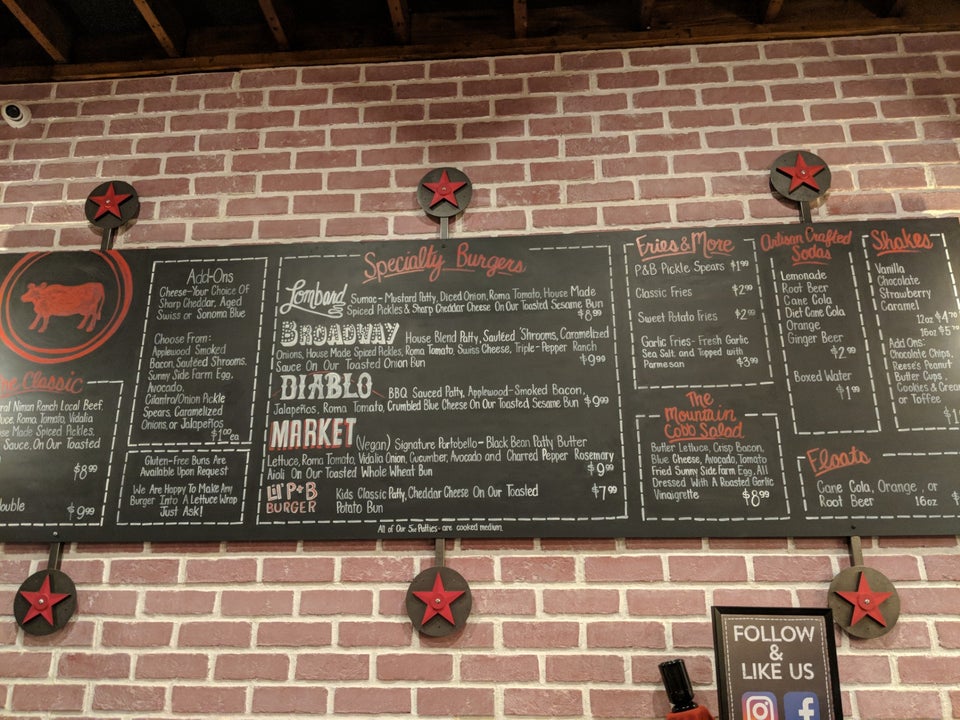 Classic
ral Niman Ranch Local Beef
uce, Roma Tomato, Vidalia
se Made Spiced Pickles,
Sauce, On Our Toasted
$8.99
ouble $9.99
Add-Ons
Cheese-Your Choice Of
Sharp Cheddar, Aged
Swiss or Sonoma Blue
Choose From:
Applewood Smoked
Bacon, Sautéed Shrooms,
Sunny Side Farm Egg,
Avocado,
Cilantro/Onion Pickle
Spears Caramelized
Onions, or Jalapeños
$1.00 ea
Gluten-Free Buns Are
Available Upon Request
We Are Happy To Make Any
Burger Into A Lettuce Wrap
Just Ask!
Specialty Burgers
Lombard Sumac-Mustard Patty, Diced Onion, Roma Tomato, House Made
Spiced Pickles & Sharp Cheddar Cheese On Our Toasted Sesame Bun
$8.99
BROADWAY House Blend Patty, Sautéed 'Shrooms, Caramelized
Onions, House Made Spiced Pickles, Roma Tomato, Swiss Cheese, Triple-Pepper Ranch
Sauce On Our Toasted Onion Bun $9.99
DIABLO BBQ Sauced Patty, Applewood-Smoked Bacon,
Jalapeños, Roma Tomato, Crumbled Blue Cheese On Our Toasted Sesame Bun $9.99
MARKET (Vegan) Signature Portobello-Black Bean Patty Butter
Lettuce, Roma Tomato, Vidalia Onion, Cucumber, Avocado and Charred Pepper Rosemary
Aioli On Our Toasted Whole Wheat Bun $9.99
Lil' P+B
BURGER
Kids Classic Patty, Cheddar Cheese On Our Toasted
Potato Bun
$7.99
All of Our 5oz Patties- are cooked medium
Fries & More
P&B Pickle Spears $1.99
Classic Fries $2.99
Sweet Potato Fries $2.99
Garlic Fries- Fresh Garlic
Sea Salt and Topped with
Parmesan $3.99
The
Mountain
Cobb Salad
Butter Lettuce, Crisp Bacon,
Blue Cheese, Avocado, Tomato
Fried Sunny Side Farm Egg, All
Dressed With A Roasted Garlic
Vinaigrette $8.99
Artisan Crafted
Sodas
Lemonade
Root Beer
Cane Cola
Diet Cane Cola
Orange
Ginger Beer
$2.99
Boxed Water
$1.99
Shakes
Vanilla
Chocolate
Strawberry
Caramel
12oz $4.
16oz $5.
Add Ons:
Chocolate Chips,
Reese's Peanut
Butter Cups,
Cookies & Cream
or Toffee
Floats
Cane Cola, Orange, or
Root Beer 16oz
FOLLOW
&
LIKE US